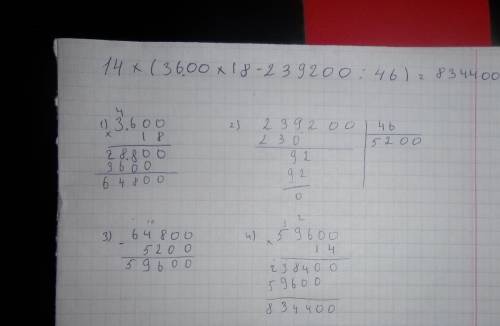 14 × (3600 × 18 - 239200 : 46) = 834400
1) 4
3.600
× 18
28.800
3600
64800
2) 239200 | 46
230 5200
92
92
0
3) 64800
- 5200
59600
4) 59600
× 14
238400
59600
834400